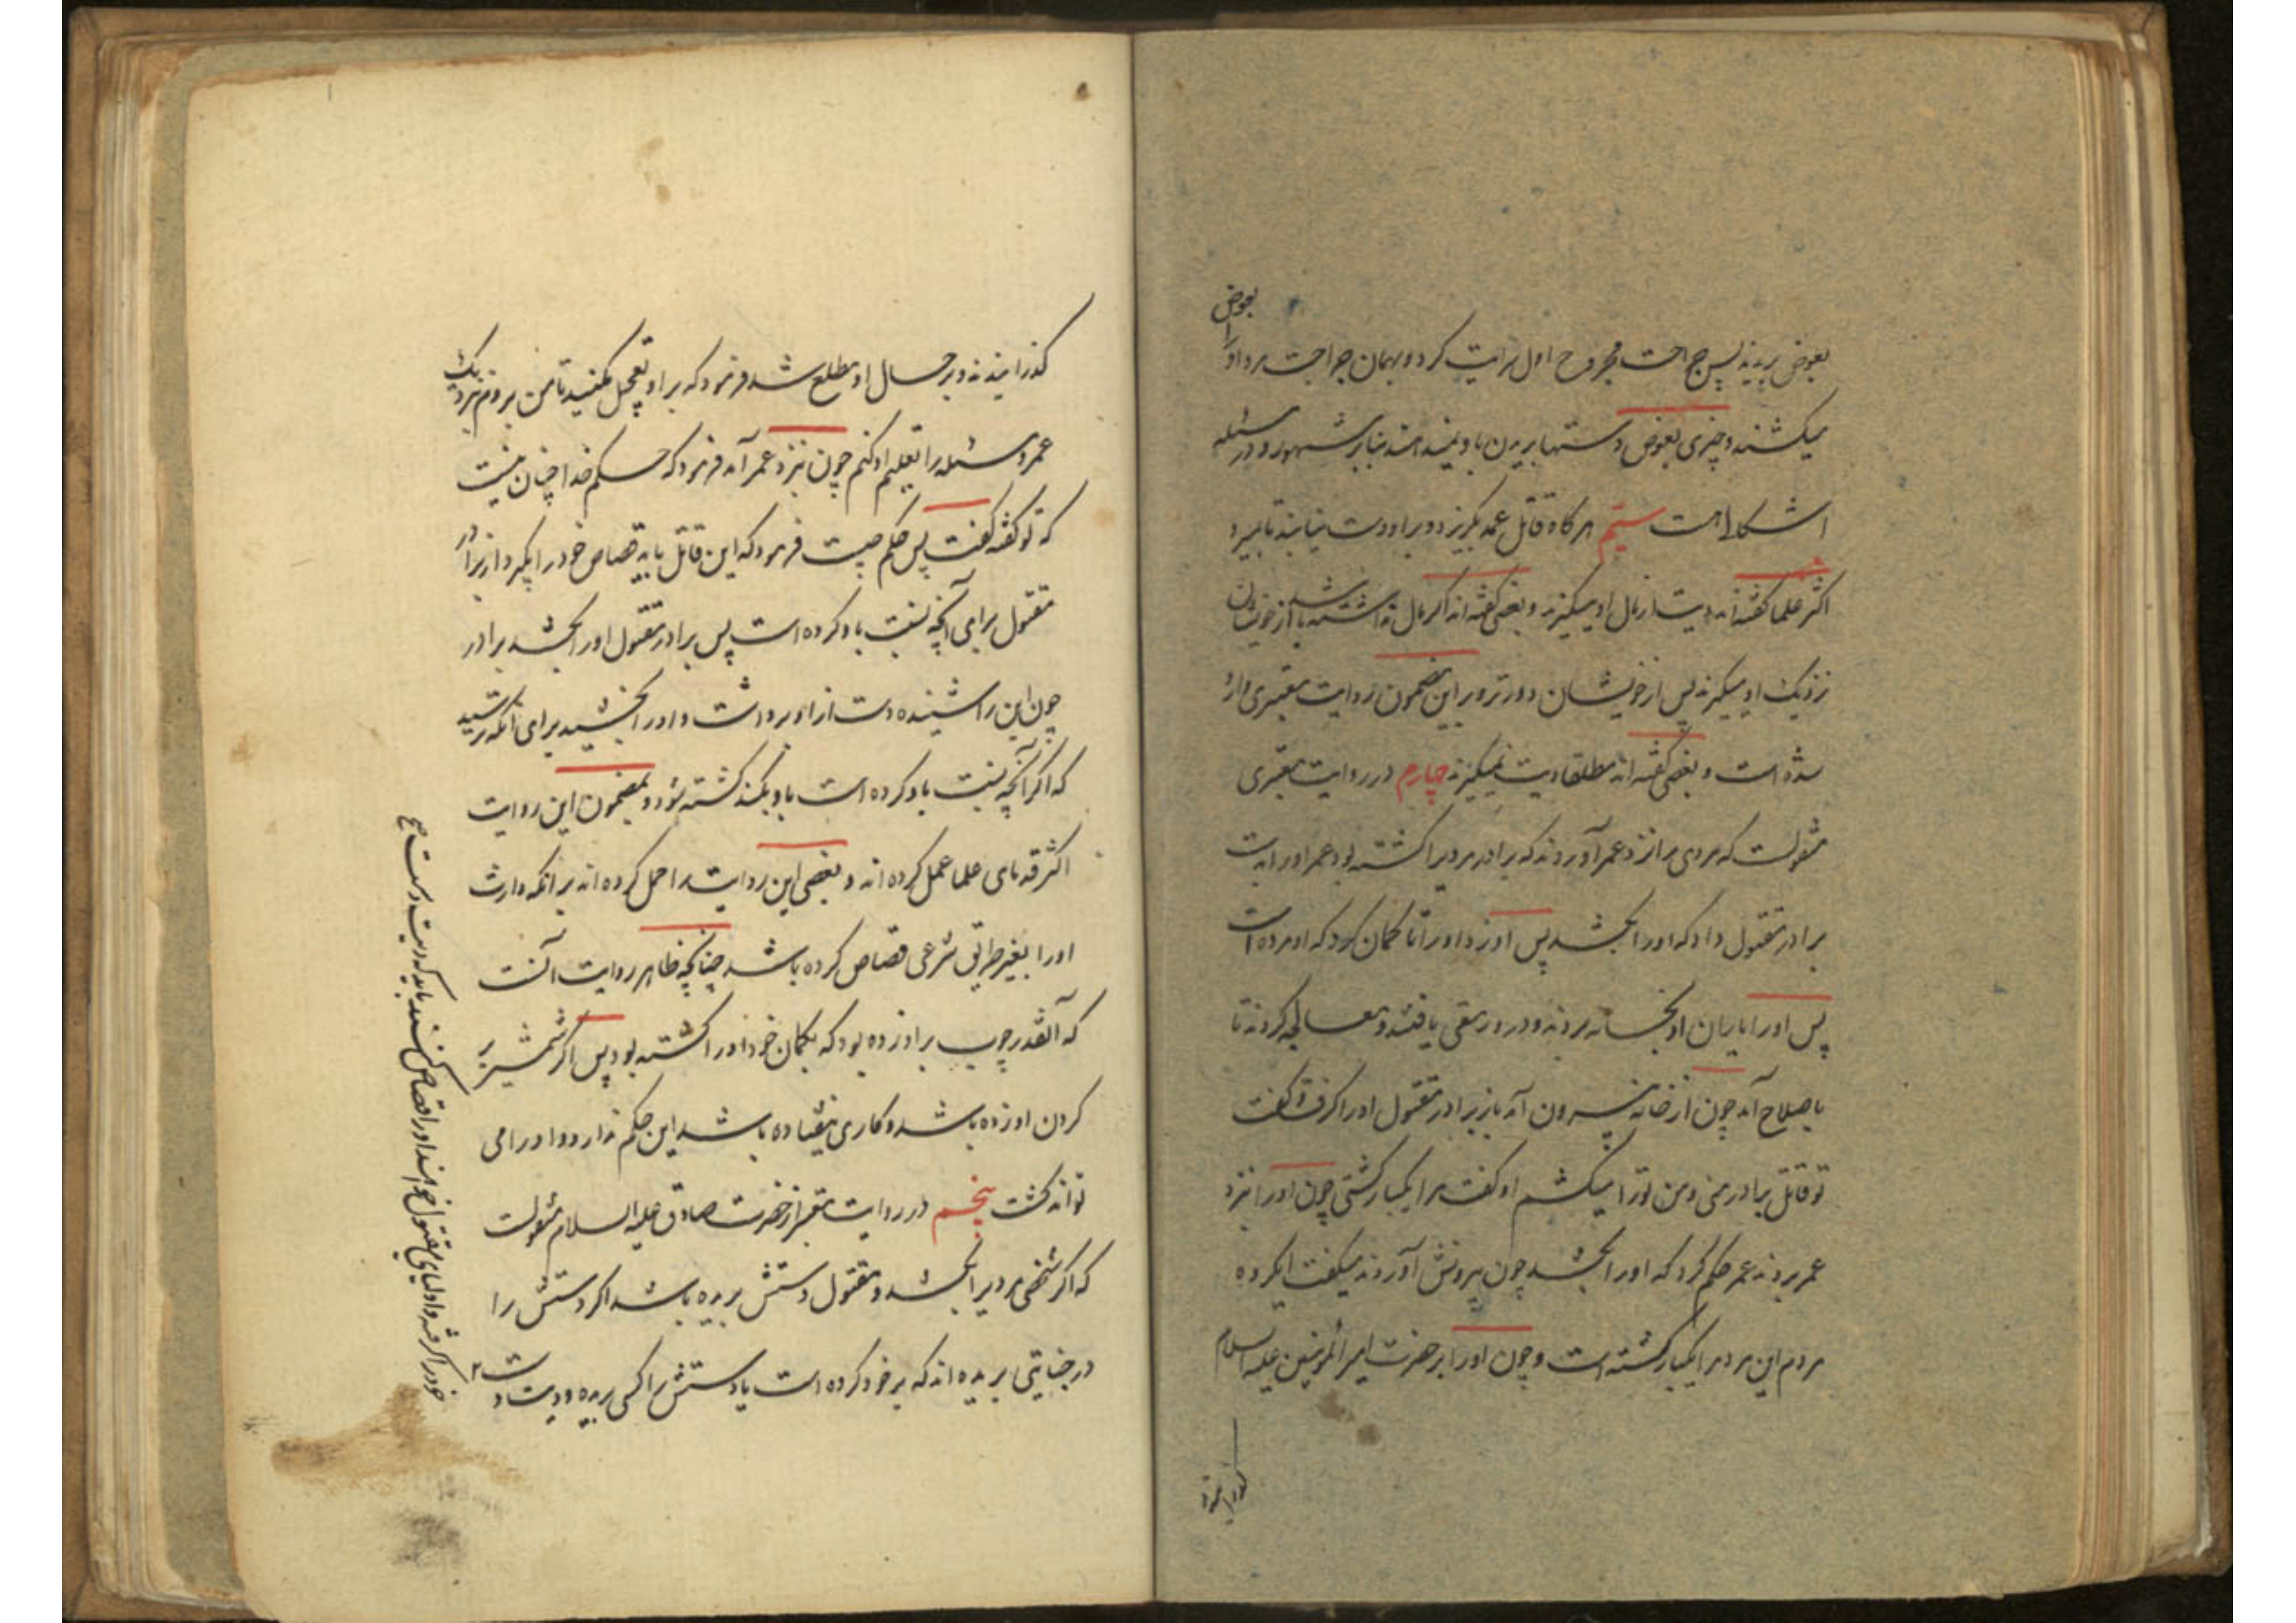 بعوض
بعوض بریدند پس جراحت مجروح اول سرایت کرد و بهمان جراحت مرد او را
میکشند و چیزی بعوض دستها بریدن باو نمیدهند بنابر مشهور و در مسئله
اشکالی هست سیّم هرگاه قاتل عمد بگریزد و بر او دست نیابند تا بمیرد
اکثر علما گفته‌اند دیت از مال او میگیرند و بعضی گفته‌اند اگر مال نداشته باشد از خویشان
نزدیک او میگیرند پس از خویشان دورتر و بر این مضمون روایت معتبری وارد
شده است و بعضی گفته‌اند مطلقا دیت نمیگیرند چهارم در روایت معتبری
منقولست که مردی را نزد عمر آوردند که برادر مردیرا کشته بود عمر او را بدست
برادر مقتول داد که او را بکشد پس او زد او را تا گمان کرد که او مرده است
پس او را یاران او بخانه بردند و در او رمقی یافتند و معالجه کردند تا
باصلاح آمد چون از خانه بیرون آمد باز برادر مقتول او را گرفت و گفت
تو قاتل برادر منی و من تو را میکشم او گفت مرا یکبار کشتی چون او را نزد
عمر بردند عمر حکم کرد که او را بکشد چون بیرونش آوردند میگفت ایگروه
مردم این مرد مرا یکبار کشته است و چون او را بر حضرت امیرالمؤمنین علیه السلام
گذرانیدند
گذرانیدند و بر حال او مطلع شد فرمود که بر او تعجیل مکنید تا من بروم نزدیک
عمر و مسئله را تعلیم او کنم چون نزد عمر آمد فرمود که حکم خدا چنان نیست
که تو گفته گفت پس حکم چیست فرمود که این قاتل باید قصاص خود را بگیرد از برادر
مقتول برای آنچه نسبت باو کرده است پس برادر مقتول او را بکشد برادر
چون این را شنید دست از او برداشت و او را بخشید برای آنکه ترسید
که اگر آنچه نسبت باو کرده است باو بکند کشته شود و بمضمون این روایت
اکثر قدمای علما عمل کرده‌اند و بعضی این روایت را حمل کرده‌اند بر انکه وارث
او را بغیر طریق شرعی قصاص کرده باشد چنانچه ظاهر روایت آنست
که آنقدر چوب بر او زده بود که بگمان خود او را کشته بود پس اگر شمشیر بر
گردن او زده باشد و کاری نیفتاده باشد این حکم ندارد و او را می
تواند کشت پنجم در روایت معتبر از حضرت صادق علیه السلام منقولست
که اگر شخصی مردیرا بکشد و مقتول دستش بریده باشد اگر دستش را
در جنایتی بریده‌اند که بر خود کرده است یا دستش را کسی بریده و دیت دست
خود را گرفته و اولیای مقتول خواهند او را قصاص کنند باید که دیت دست